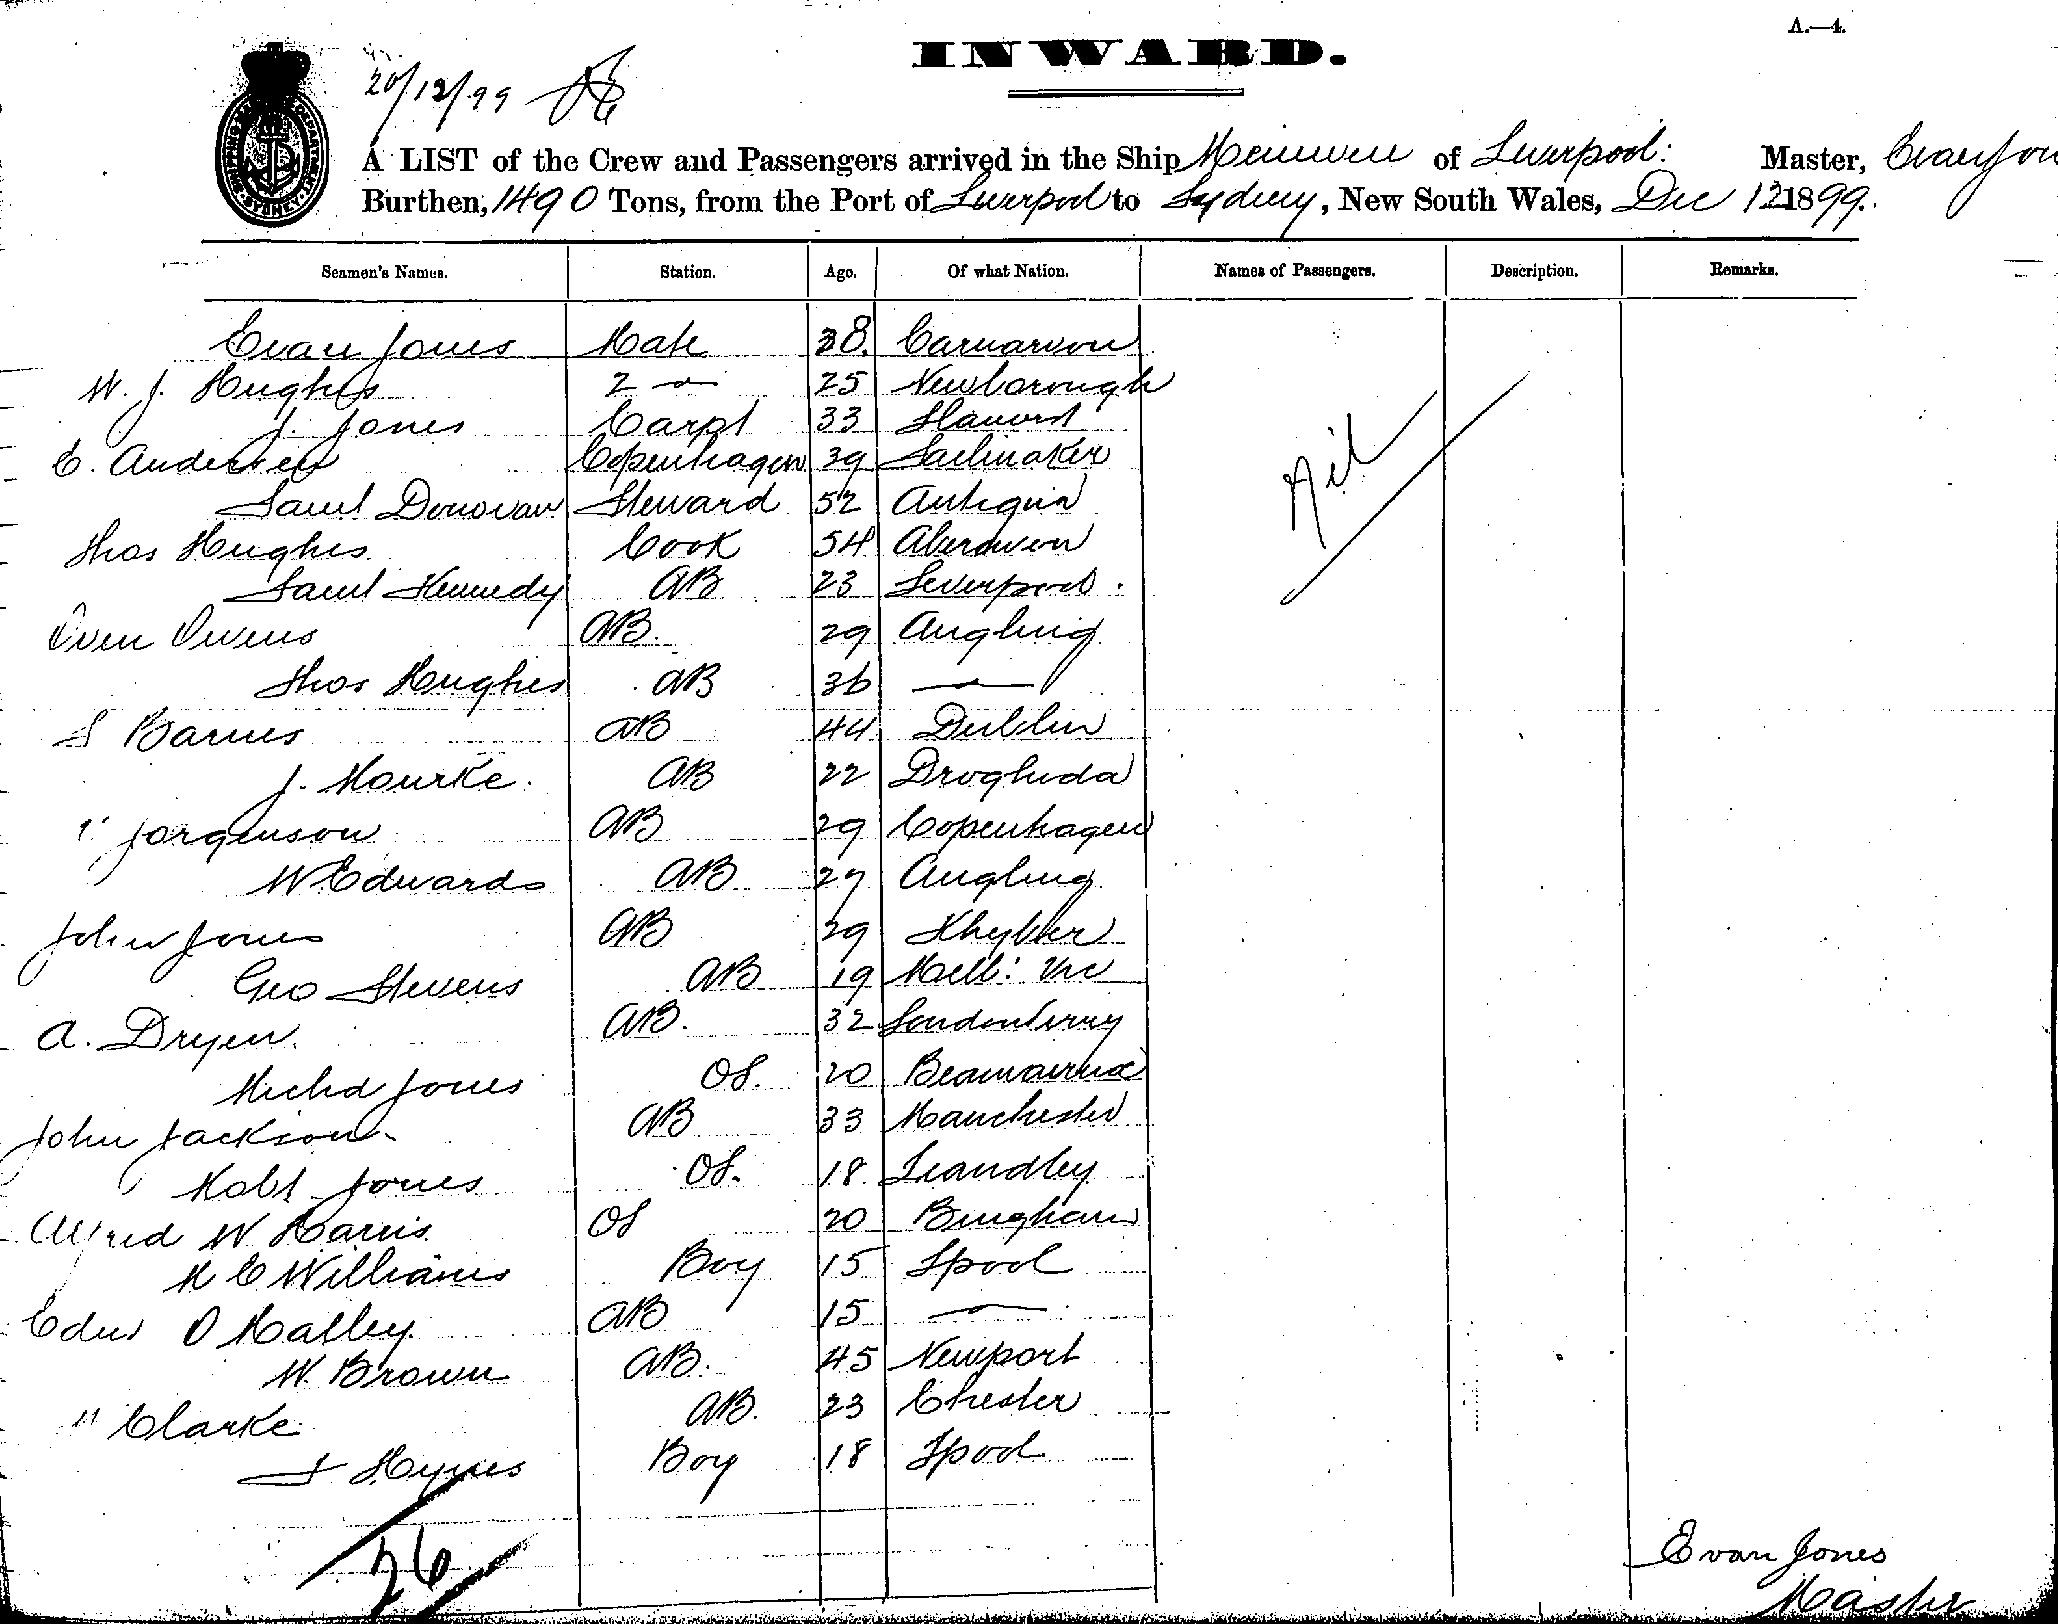 A.—4.
INWARD.
20/12/99
A LIST of the Crew and Passengers arrived in the Ship Meinwen of Liverpool: Master, Evan Jon
Burthen, 1490 Tons, from the Port of Liverpool to Sydney, New South Wales, Dec 12 1899.
Seamen's Names. Station. Age. Of what Nation. Names of Passengers. Description. Remarks.
Evan Jones Mate 38. Carnarvon
W. J. Hughes 2 — 25 Newborough
J. Jones Carpt 33
C. Andersen Copenhagen 39 Sailmaker
Saml Donovan Steward 52 Antigua
Nil
Thos Hughes Cook 54
Saml Kennedy AB 23 Liverpool.
Owen Owens AB. 29
Thos Hughes AB 36 —
S Barnes AB 44 Dublin
J. Rourke. AB 22 Drogheda
" Jorgenson AB 29 Copenhagen
W Edwards AB 27
John Jones AB 29
Geo Stevens AB 19 Melb: Vic
A. Dryen. AB. 32 Londonderry
Richd Jones OS. 20
John Jackson AB 33 Manchester
Robt Jones OS. 18
Alfred W Harris OS 20
R C Williams Boy 15 Lpool
Edwd O Malley. AB 15 —
W. Brown AB. 45 Newport
" Clarke AB. 23 Chester
J Hynes Boy 18 Lpool
26
Evan Jones
Master